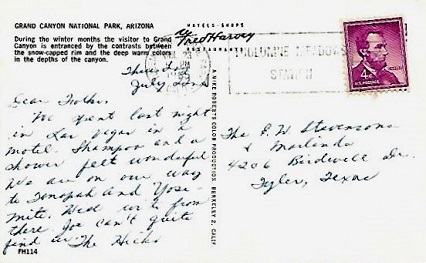 GRAND CANYON NATIONAL PARK, ARIZONA
During the winter months the visitor to Grand
Canyon is entranced by the contrasts between
the snow-capped rim and the deep warm colors
in the depths of the canyon.
HOTELS · SHOPS
Fred Harvey
RESTAURANTS
TUOLUMNE MEADOWS
STATION
4¢
U.S. POSTAGE
July
Dear Folks,
We spent last night
in Las Vegas in a
motel. Shampoo and a
shower felt wonderful
We are on our way
to Tonopah and Yose-
mite. Will write from
there. Joe can't quite
find
The Hicks
FH114
A MIKE ROBERTS COLOR PRODUCTION BERKELEY 2, CALIF
The E W Stevensons
& Marlinda
4206 Birdwell Dr.
Tyler, Texas